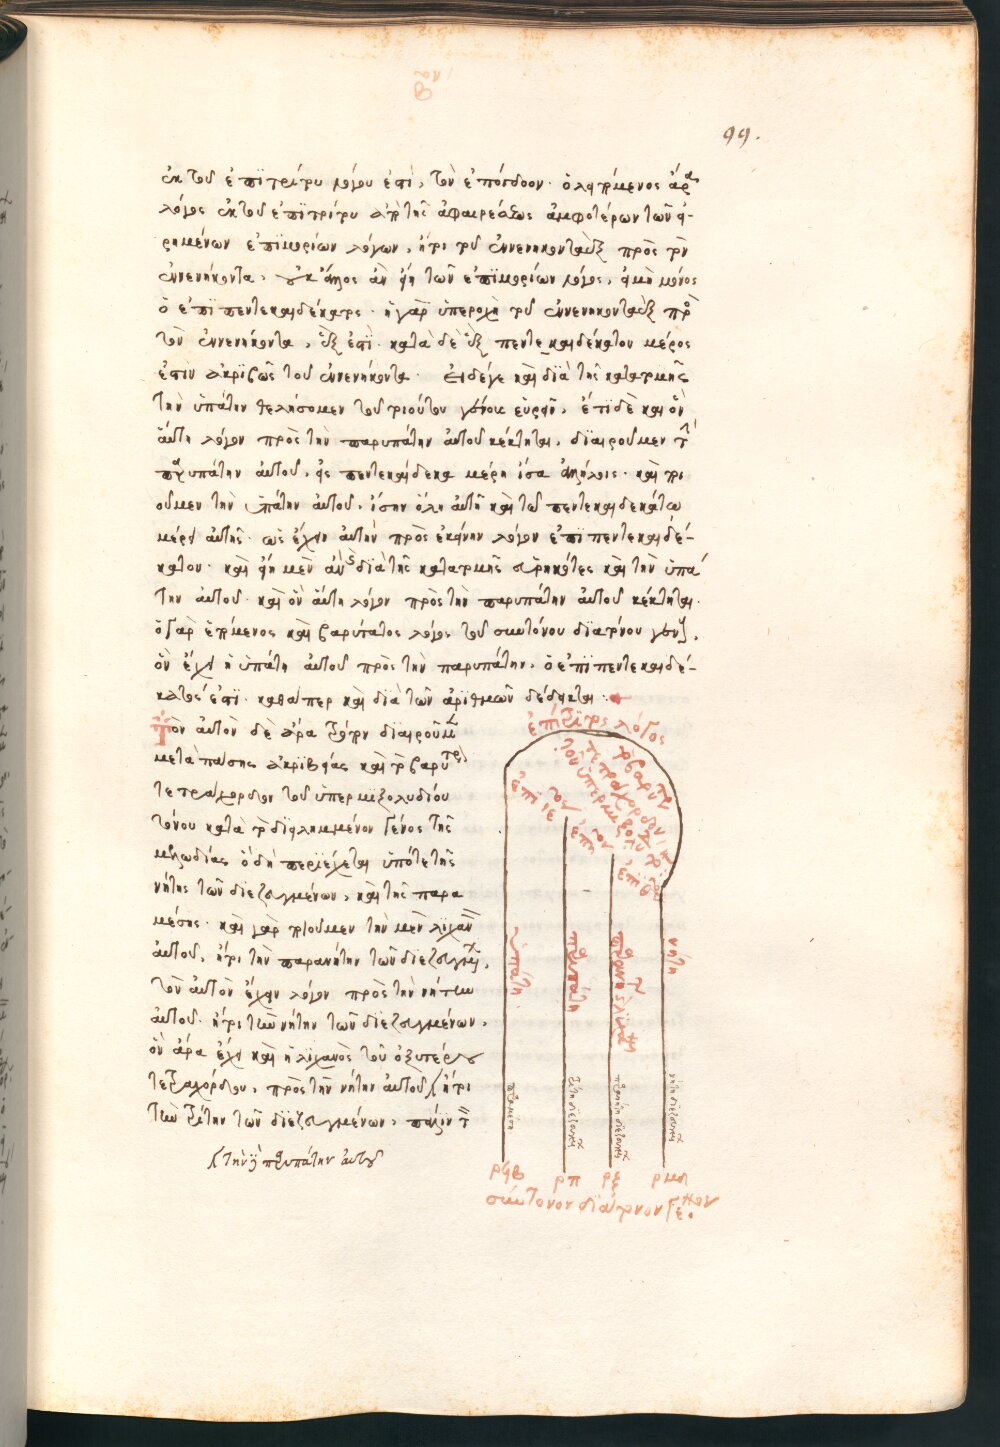 99.
ἐκ τοῦ ἐπιτρίτου λόγου ἐστὶ, τὸν ἐπόγδοον· ὁ λειπόμενος ἄρα
λόγος ἐκ τοῦ ἐπιτρίτου μετὰ τῆς ἀφαιρέσεως ἀμφοτέρων τῶν εἰ-
ρημένων ἐπιμορίων λόγων, ἤτοι τοῦ ἐννενηκονταὲξ πρὸς τὸν
ἐννενήκοντα, οὐκ ἄλλος ἂν εἴη τῶν ἐπιμορίων λόγος, εἰ μὴ μόνος
ὁ ἐπιπεντεκαιδέκατος· ἡ γὰρ ὑπεροχὴ τοῦ ἐννενηκονταὲξ πρὸς
τὸν ἐννενήκοντα, ἕξ ἐστὶ· κατὰ δὲ ἓξ πεντεκαιδέκατον μέρος
ἐστὶν ἀκριβῶς τοῦ ἐννενήκοντα· εἰ δέ γε καὶ διὰ τῆς κατατομῆς
τὴν ὑπάτην θελήσομεν τοῦ τοιούτου γένους εὑρεῖν, ἔτι δὲ καὶ ὃν
αὕτη λόγον πρὸς τὴν παρυπάτην αὐτοῦ κέκτηται, διαιροῦμεν τὴν
παρυπάτην αὐτοῦ, εἰς πεντεκαίδεκα μέρη ἴσα ἀλλήλοις· καὶ ποι
οῦμεν τὴν ὑπάτην αὐτοῦ, ἴσην ὅλῃ αὐτῇ καὶ τῷ πεντεκαιδεκάτῳ
μέρει αὐτῆς· ὡς ἔχειν αὐτὴν πρὸς ἐκείνην λόγον ἐπιπεντεκαιδέ-
κατον· καὶ εἴημεν ἂν διὰ τῆς κατατομῆς εὑρηκότες καὶ τὴν ὑπά
την αὐτοῦ· καὶ ὃν αὕτη λόγον πρὸς τὴν παρυπάτην αὐτοῦ κέκτηται·
ὁ γὰρ ἑπόμενος καὶ βαρύτατος λόγος τοῦ συντόνου διατόνου γένους,
ὃν ἔχει ἡ ὑπάτη αὐτοῦ πρὸς τὴν παρυπάτην, ὁ ἐπιπεντεκαιδέ-
κατός ἐστι· καθάπερ καὶ διὰ τῶν ἀριθμῶν δέδεικται·
τὸν αὐτὸν δὲ ἄρα τρόπον διαιροῦμεν
μετὰ πάσης ἀκριβείας καὶ τὸ βαρύτερον
τετράχορδον τοῦ ὑπερμιξολυδίου
τόνου κατὰ τὸ διειλημμένον γένος τῆς
μελωδίας ὃ δὴ περιέχεται ὑπό τε τῆς
νήτης τῶν διεζευγμένων, καὶ τῆς παρα
μέσης· καὶ γὰρ ποιοῦμεν τὴν μὲν λιχανὸν
αὐτοῦ, ἤτοι τὴν παρανήτην τῶν διεζευγμένων,
τὸν αὐτὸν ἔχειν λόγον πρὸς τὴν νήτην
αὐτοῦ ἤτοι τὴν νήτην τῶν διεζευγμένων,
ὃν ἄρα ἔχει καὶ ἡ λιχανὸς τοῦ ὀξυτέρου
τετραχόρδου, πρὸς τὴν νήτην αὐτοῦ ἤτοι
τὴν τρίτην τῶν διεζευγμένων, πάλιν
τὴν παρυπάτην αὐτοῦ
ἐπίτριτος λόγος
τὸ βαρύτερον
τετράχορδον
τοῦ ὑπερμιξολυδίου
ἐπὶ ιε
ἐπὶ η
ἐπὶ θ
ὑπάτη
παρυπάτη
παρανήτη ἢ λιχανός
νήτη
παραμέση
τρίτη διεζευγμένων
παρανήτη διεζευγμένων
νήτη διεζευγμένων
ρϟβ ρπ ρξ ρμδ
σύντονον διάτονον γένος